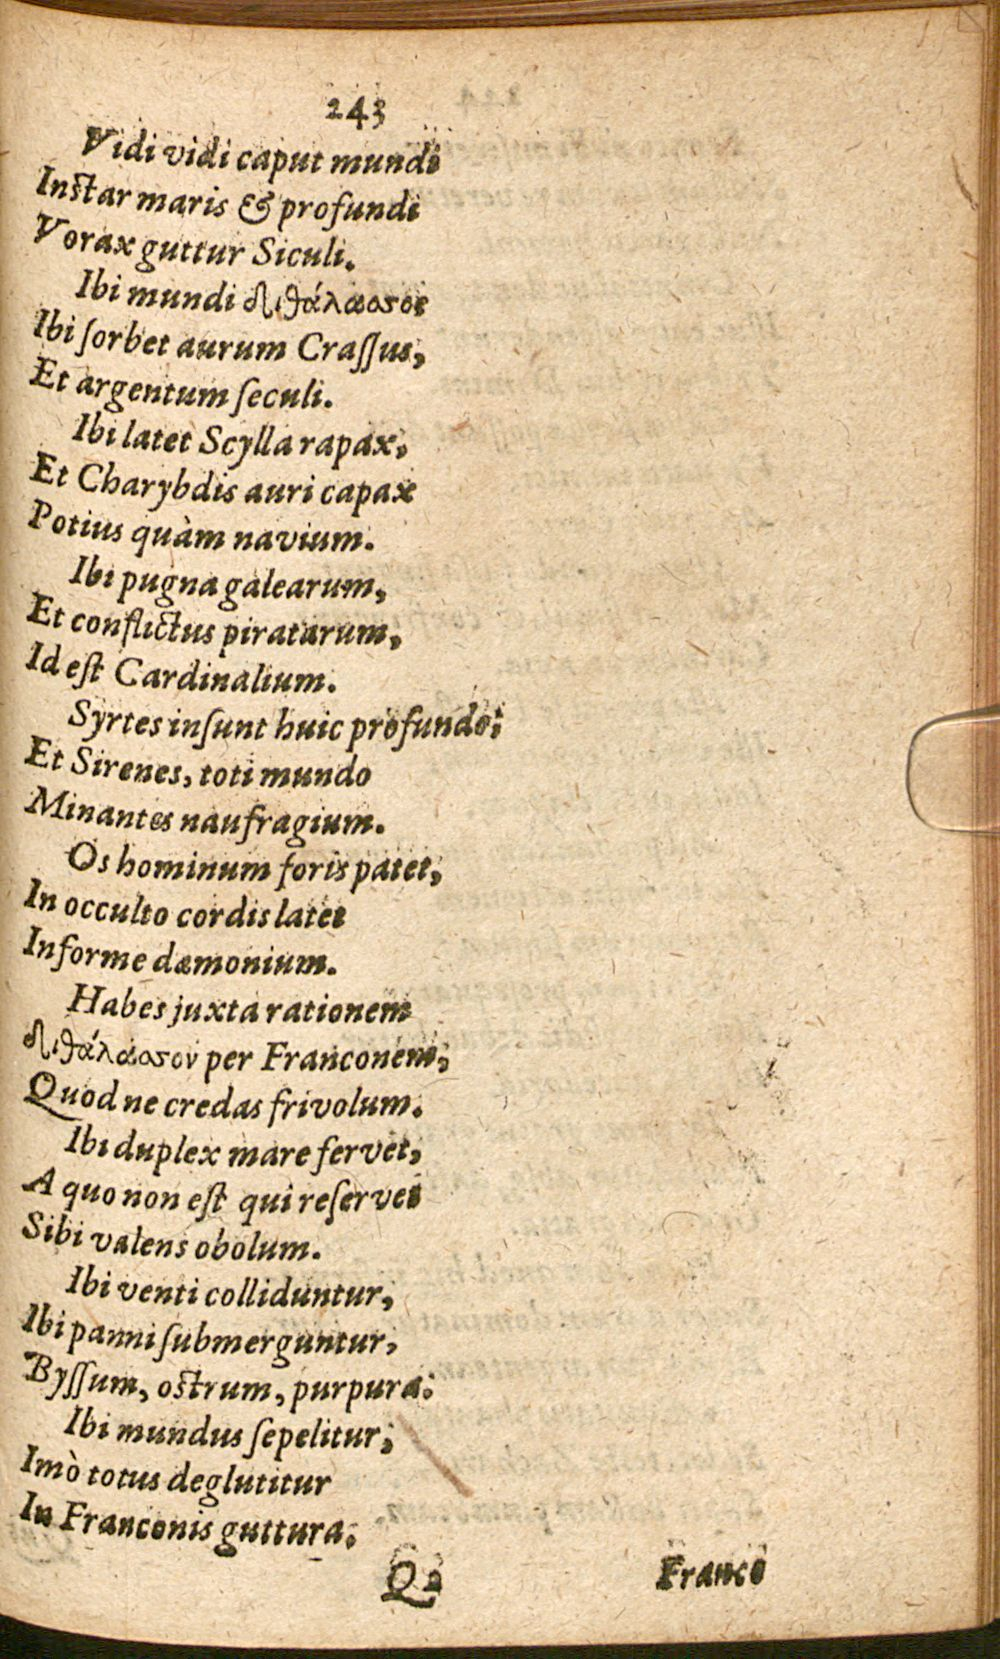 243
Vidi vidi caput mundi
Instar maris & profundi
Vorax guttur Siculi.
Ibi mundi διθάλασσος
Ibi ſorbet aurum Craſſus,
Et argentum ſeculi.
Ibi latet Scylla rapax,
Et Charybdis auri capax
Potius quàm navium.
Ibi pugna galearum,
Et conflictus piratarum,
Id eſt Cardinalium.
Syrtes inſunt huic profundo:
Et Sirenes, toti mundo
Minantes naufragium.
Os hominum foris patet,
In occulto cordis latet
Informe dæmonium.
Habes juxta rationem
διθάλασσον per Franconem,
Quod ne credas frivolum.
Ibi duplex mare fervet,
A quo non eſt qui reſervet
Sibi valens obolum.
Ibi venti colliduntur,
Ibi panni ſubmerguntur,
Byſſum, ostrum, purpura:
Ibi mundus ſepelitur,
Imò totus deglutitur
In Franconis guttura.
Q2 Franco